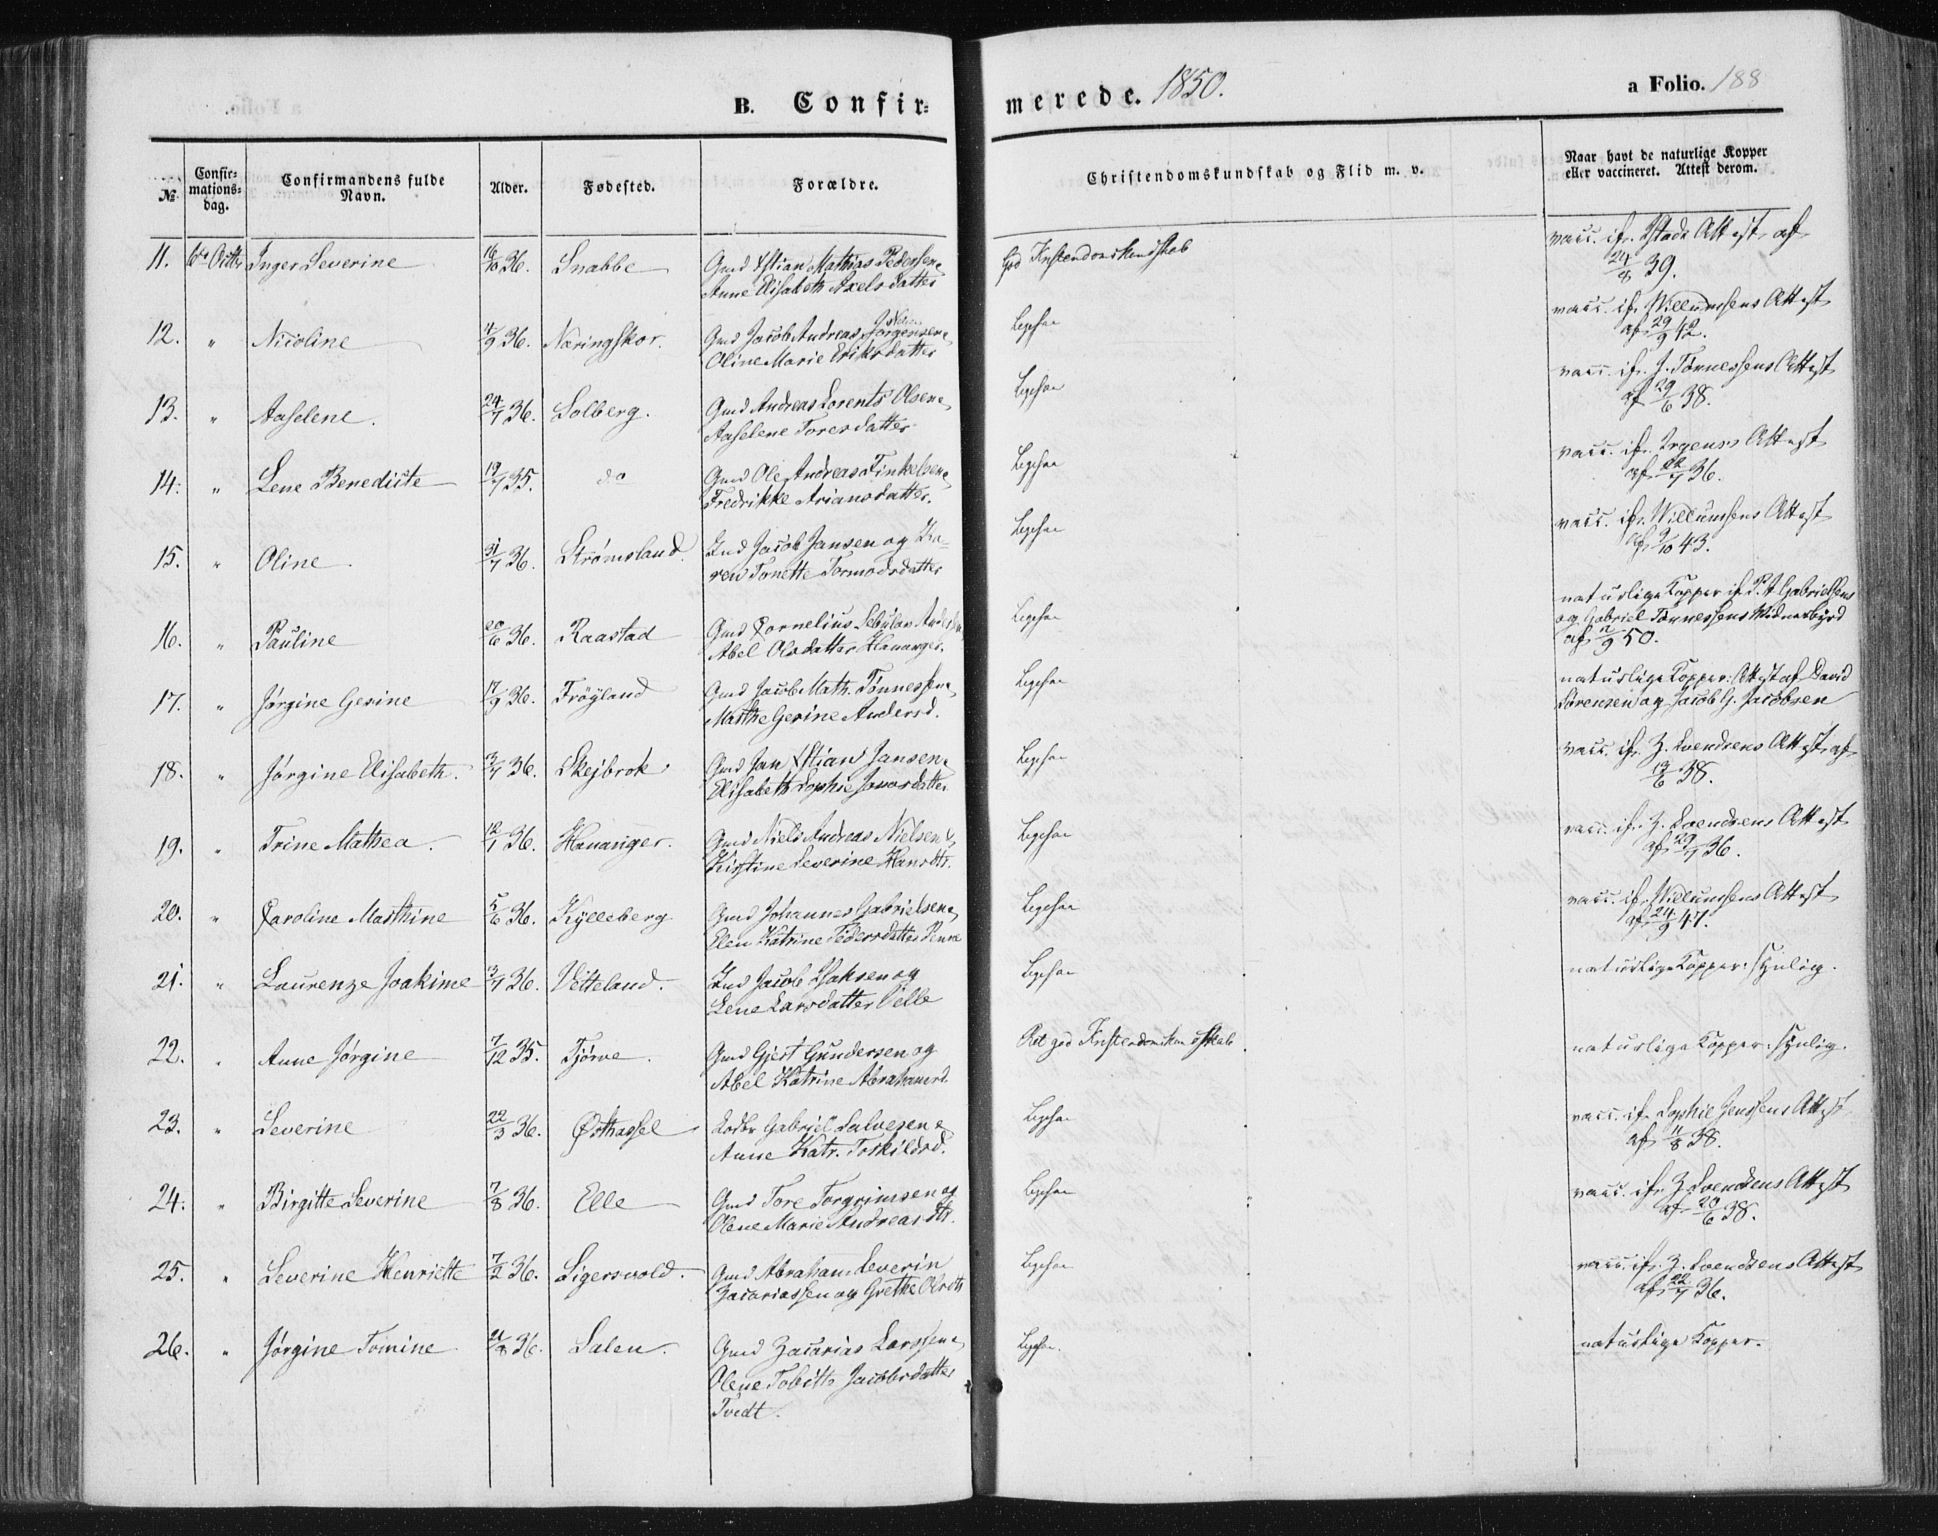 B. Confir= merede. 1850. a Folio. 188
№ Confir=mations=dag. Confirmandens fulde Navn. Alder. Fødested. Forældre. Christendomskundskab og Flid m. v. Naar havt de naturlige Kopper eller vaccineret. Attest derom.
11. Inger Severine 16/10 36. Snabbe Gmd Xstian Mathias Pedersen, God Kristendomskundskab vacc. if. Stads Attest af
Anne Elisabeth Axelsdatter 24/8 39.
12. " Nicoline 11/9 36. Næringskor. Gmd Jacob Andreas Jørgensen, Ligesaa vacc. if. Willumsens Attest
Oline Marie Eriksdatter af 29/9 42.
13. " Aaselene. 24/7 36. Solberg. Gmd Andreas Lorents Olsen, Ligesaa vacc. if. J. Tønnessens Attest
Aaselene Toresdatter af 29/6 38.
14. " Lene Benedicte 19/7 35. do Gmd Ole Andreas Finkelsen, Ligesaa vacc. if. Irgens's Attest
Fredrikke Ariansdatter. af 22/7 36.
15. " Oline. 31/7 36. Strømsland. Ind Jacob Jansen og Ka- Ligesaa vacc. if. Willumsens Attest
ren Tonette Tormodsdatter af 9/10 43.
16. " Pauline 20/6 36. Raastad Gmd Cornelius Sebulon Ligesaa naturlige Kopper if. P. A. Gabrielsens
Abel Olsdatter Hananger. og Gabriel Tønnessens Vidnesbyrd
af 2/9 50.
17. " Jørgine Gesine 17/9 36. Frøyland Gmd Jacob Math. Tønnessen, Ligesaa naturlige Kopper: Attest af David
Marthe Gesine Andersd. Sørensen og Jacob G. Jacobsen
18. " Jørgine Elisabeth. 13/7 36. Skejbrok Gmd Jan Xstian Jansen, Ligesaa vacc. if. Z. Svendsens Attest af
Elisabeth Sophie Jonasdatter 13/6 38.
19. " Trine Mathea. 12/1 36. Hananger. Gmd Niels Andreas Nielsen, Ligesaa vacc. if. Z. Svendsens Attest
Kistine Severine Hansdtr. af 29/7 36.
20. " Caroline Marthine 5/6 36. Kylleberg Gmd Johannes Gabrielsen, Ligesaa vacc. if. Willumsens Attest
Elen Katrine Pedersdatter Penne af 24/9 47.
21. " Laurenze Joakime 13/7 36. Vetteland. Ind Jacob Isaksen og Ligesaa naturlige Kopper: synlig.
Lene Larsdatter Velle
22. " Anne Jørgine 7/12 35. Tjørve. Gmd Gjert Gundersen og Ret god Kristendomskundskab naturlige Kopper: synlig.
Abel Katrine Abrahamsd.
23. " Severine 22/3 36. Østhassel Gabriel Salvesen & Ligesaa vacc. if. Sophie Jenssens Attest
Anne Katr. Torkildsd. af 11/8 38.
24. " Birgitte Severine 7/8 36. Elle Gmd Tore Torgrimsen og Ligesaa vacc. if. Z. Svendsens Attest
Olene Marie Andreasdtr. af 20/6 38.
25. " Severine Henriette 7/2 36. Sigersvold. Gmd Abraham Severin Ligesaa vacc. if. Z. Svendsens Attest
Zacariassen og Grethe Olsdtr af 22/7 36.
26. " Jørgine Tomine 21/8 36. Salen. Gmd Zacarias Larssen, Ligesaa. naturlige Kopper.
Olene Tobitte Jacobsdatter
Tvedt.